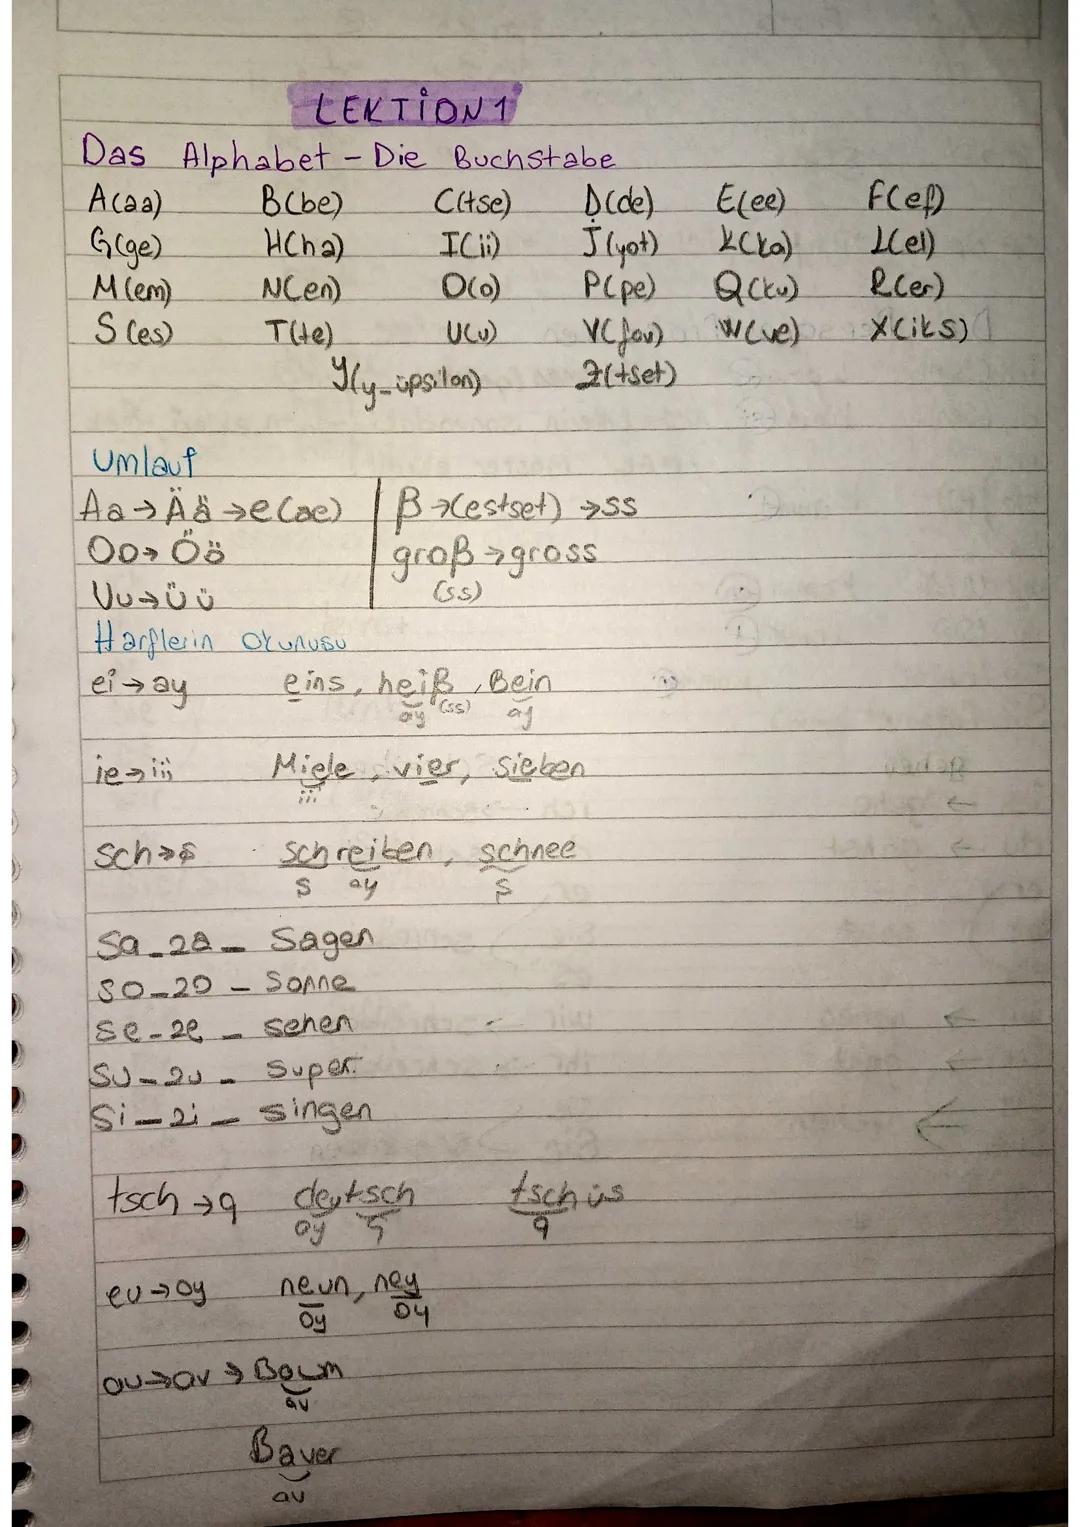 LEKTİON 1
Das Alphabet - Die Buchstabe
A(aa) B(be) C(tse) D(de) E(ee) F(ef)
G(ge) H(ha) I(ii) J(yot) K(ka) L(el)
M(em) N(en) O(o) P(pe) Q(ku) R(er)
S(es) T(te) U(u) V(fau) W(ve) X(iks)
Y(y_üpsilon) Z(tset)
Umlauf
Aa→Ää→e(ae) ß→(estset)→ss
Oo→Öö groß→gross
(ss)
Uu→Üü
Harflerin Okunuşu
ei→ay eins, heiß, Bein
ay (ss) ay
ie→iii Miele, vier, sieben
iii
sch→ş schreiben, schnee
ş ay ş
Sa_za_ Sagen
so_zo_ Sonne
se_ze_ sehen
su_zu_ super
si_zi_ singen
tsch→ç deutsch tschüs
oy ç ç
eu→oy neun, ney
oy oy
au→av→Baum
av
Bauer
au